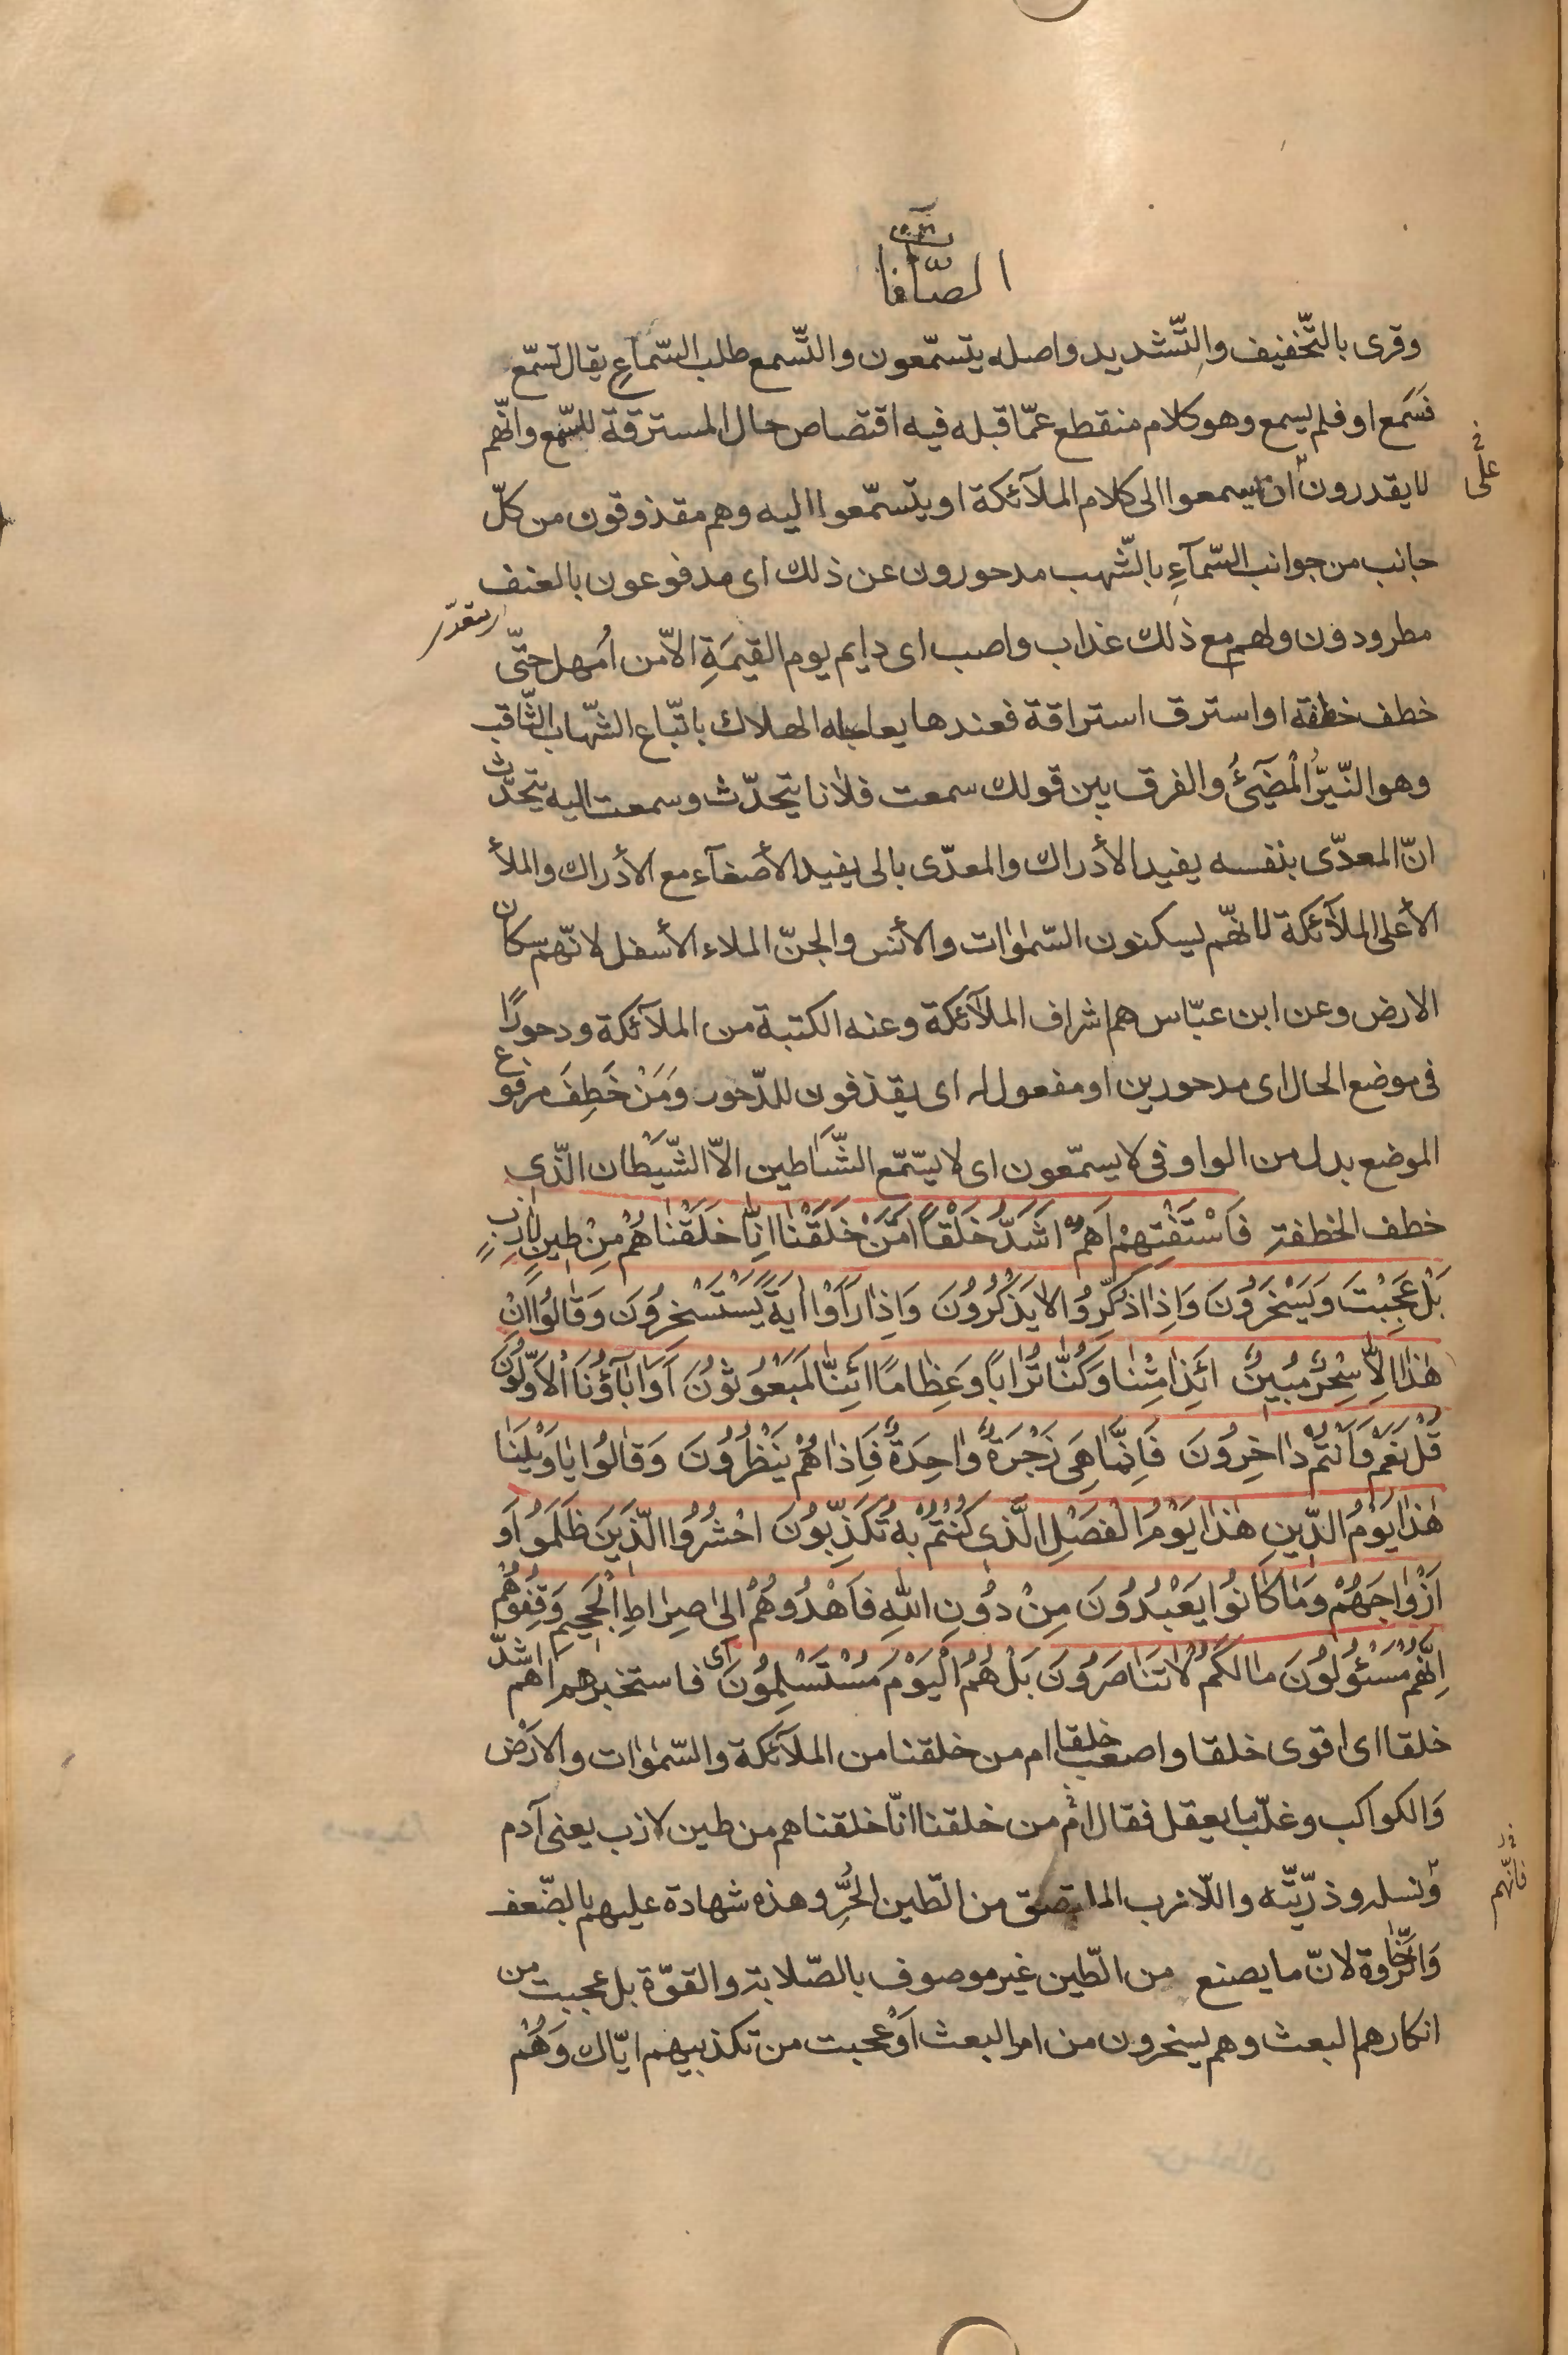 الصّافات
وقرى بالتّخفيف والتّشديد واصله يتسمّعون والتّسمع طلب السّماع يقال تسمّع
فسَمع او فلم يسمع وهو كلام منقطع عمّا قبله فيه اقتصاص حال المسترقة للسّمع وانّهم
لا يقدرون ان يسمعوا الى كلام الملآئكة او يتسمّعوا اليه وهم مقذوفون من كلّ
على
جانب من جوانب السّمآءِ بالشّهب مدحورون عن ذلك اى مدفوعون بالعنف
مطرودون ولهم مع ذلك عذاب واصب اى دايم يوم القيمَةِ الاّ من اُمهل حتّى
خطف خطفة او استرق استراقة فعندها يعاجله الهلاك باتّباع الشّهاب الثّاقب
وهو النّيّرُ الْمُضَيئُ والفرق بين قولك سمعت فلانا يتحدّث وسمعت اليه يتحدّث
انّ المعدّى بنفسه يفيد الأدراك والمعدّى بالى يفيد الأصغآء مع الأدراك والملأ
الأعلى الملآئكة لانّهم يسكنون السّمٰوات والأنس والجنّ الملاء الأسفل لانّهم سكان
الارض وعن ابن عبّاس هم اشراف الملآئكة وعنه الكتبة من الملآئكة ودحورًا
فى موضع الحال اى مدحورين او مفعول له اى يقذفون للدّحور وَمَنْ خَطِفَ مرفوع
الموضع بدل من الواو فى لا يسمّعون اى لا يسّمّع الشَّياطين الاّ الشّيْطان الّذى
خطف الخطفة فَاسْتَفْتِهِمْ اَهُمْ اَشَدُّ خَلْقاً اَمْ مَنْ خَلَقْنا اِنّا خَلَقْناهُمْ مِنْ طينٍ لازِبٍ
بَلْ عَجِبْتَ وَيَسْخَرُونَ وَاِذا ذُكِّرُوا لا يَذْكُرُونَ وَاِذا رَاَوْا ايَةً يَسْتَسْخِرُونَ وَقالُوا اِنْ
هٰذا اِلاّ سِحْرٌ مُبينٌ ائَذا مِتْنا وَكُنّا تُراباً وَعِظاماً ائَنّا لَمَبْعُوثُونَ اَوَ ابآؤُنَا الْاَوَّلُونَ
قُلْ نَعَمْ وَاَنْتُمْ داخِرُونَ فَاِنَّما هِىَ زَجْرَةٌ واحِدَةٌ فَاِذاهُمْ يَنْظُرُونَ وَقالُوا ياوَيْلَنا
هٰذا يَوْمُ الدّينِ هٰذا يَوْمُ الْفَصْلِ الَّذى كُنْتُمْ بِهِ تُكَذِّبُونَ احْشُرُوا الَّذينَ ظَلَمُوا وَ
اَزْواجَهُمْ وَما كانُوا يَعْبُدُونَ مِنْ دُونِ اللّهِ فَاهْدُوهُمْ اِلى صِراطِ الْجَحيمِ وَقِفُوهُمْ
اِنَّهُمْ مَسْئُولُونَ مالَكُمْ لا تَناصَرُونَ بَلْ هُمُ الْيَوْمَ مُسْتَسْلِمُونَ اى فاستخبرهم اَهم اشدّ
خلقا اى اقوى خلقا واصعب خلقا ام من خلقنا من الملآئكة والسّمٰوات والارْض
وَالكواكب وغلّب ما يعقل فقال امْ من خلقنا انّا خلقناهم من طين لازب يعنى آدم
فانّهم
ونسله وذرّيّته واللاّزب الملتصق من الطّين الحُرِّ وهذه شهادة عليهم بالضّعف
وَالرّخاوة لانّ ما يصنع من الطّين غير موصوف بالصّلابة والقوّة بل عجبت من
انكارهم البعث وهم يسخرون من امر البعث اَوْ عجبت من تكذيبهم ايّاك وَهُمْ